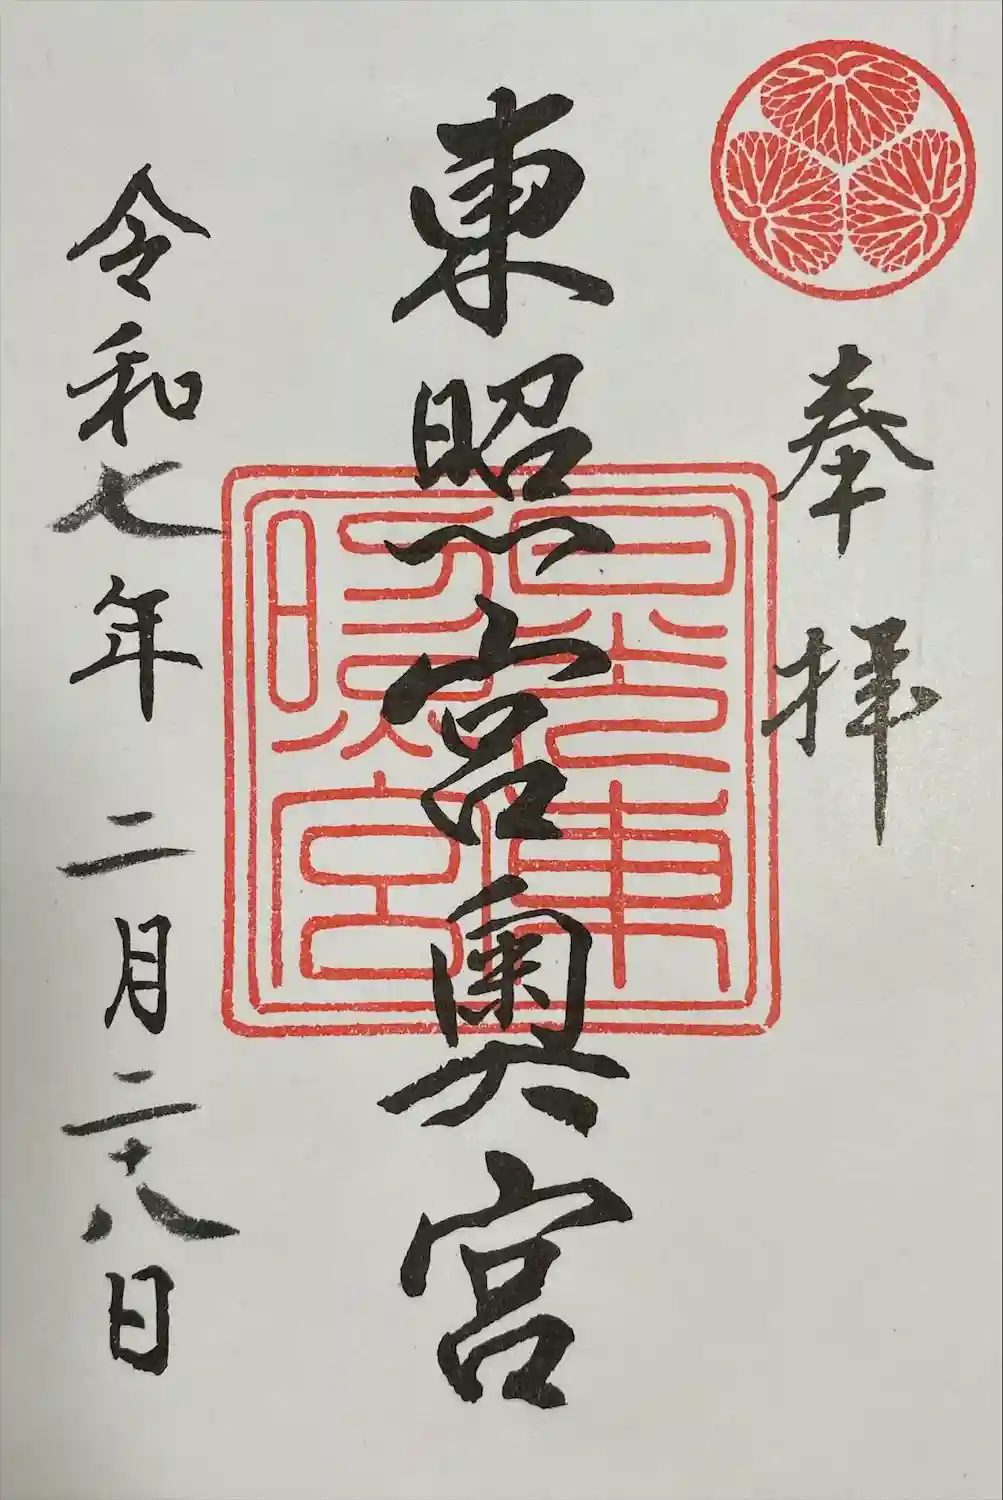 奉拝
東照宮奥宮
日光東照宮
令和七年二月二十八日